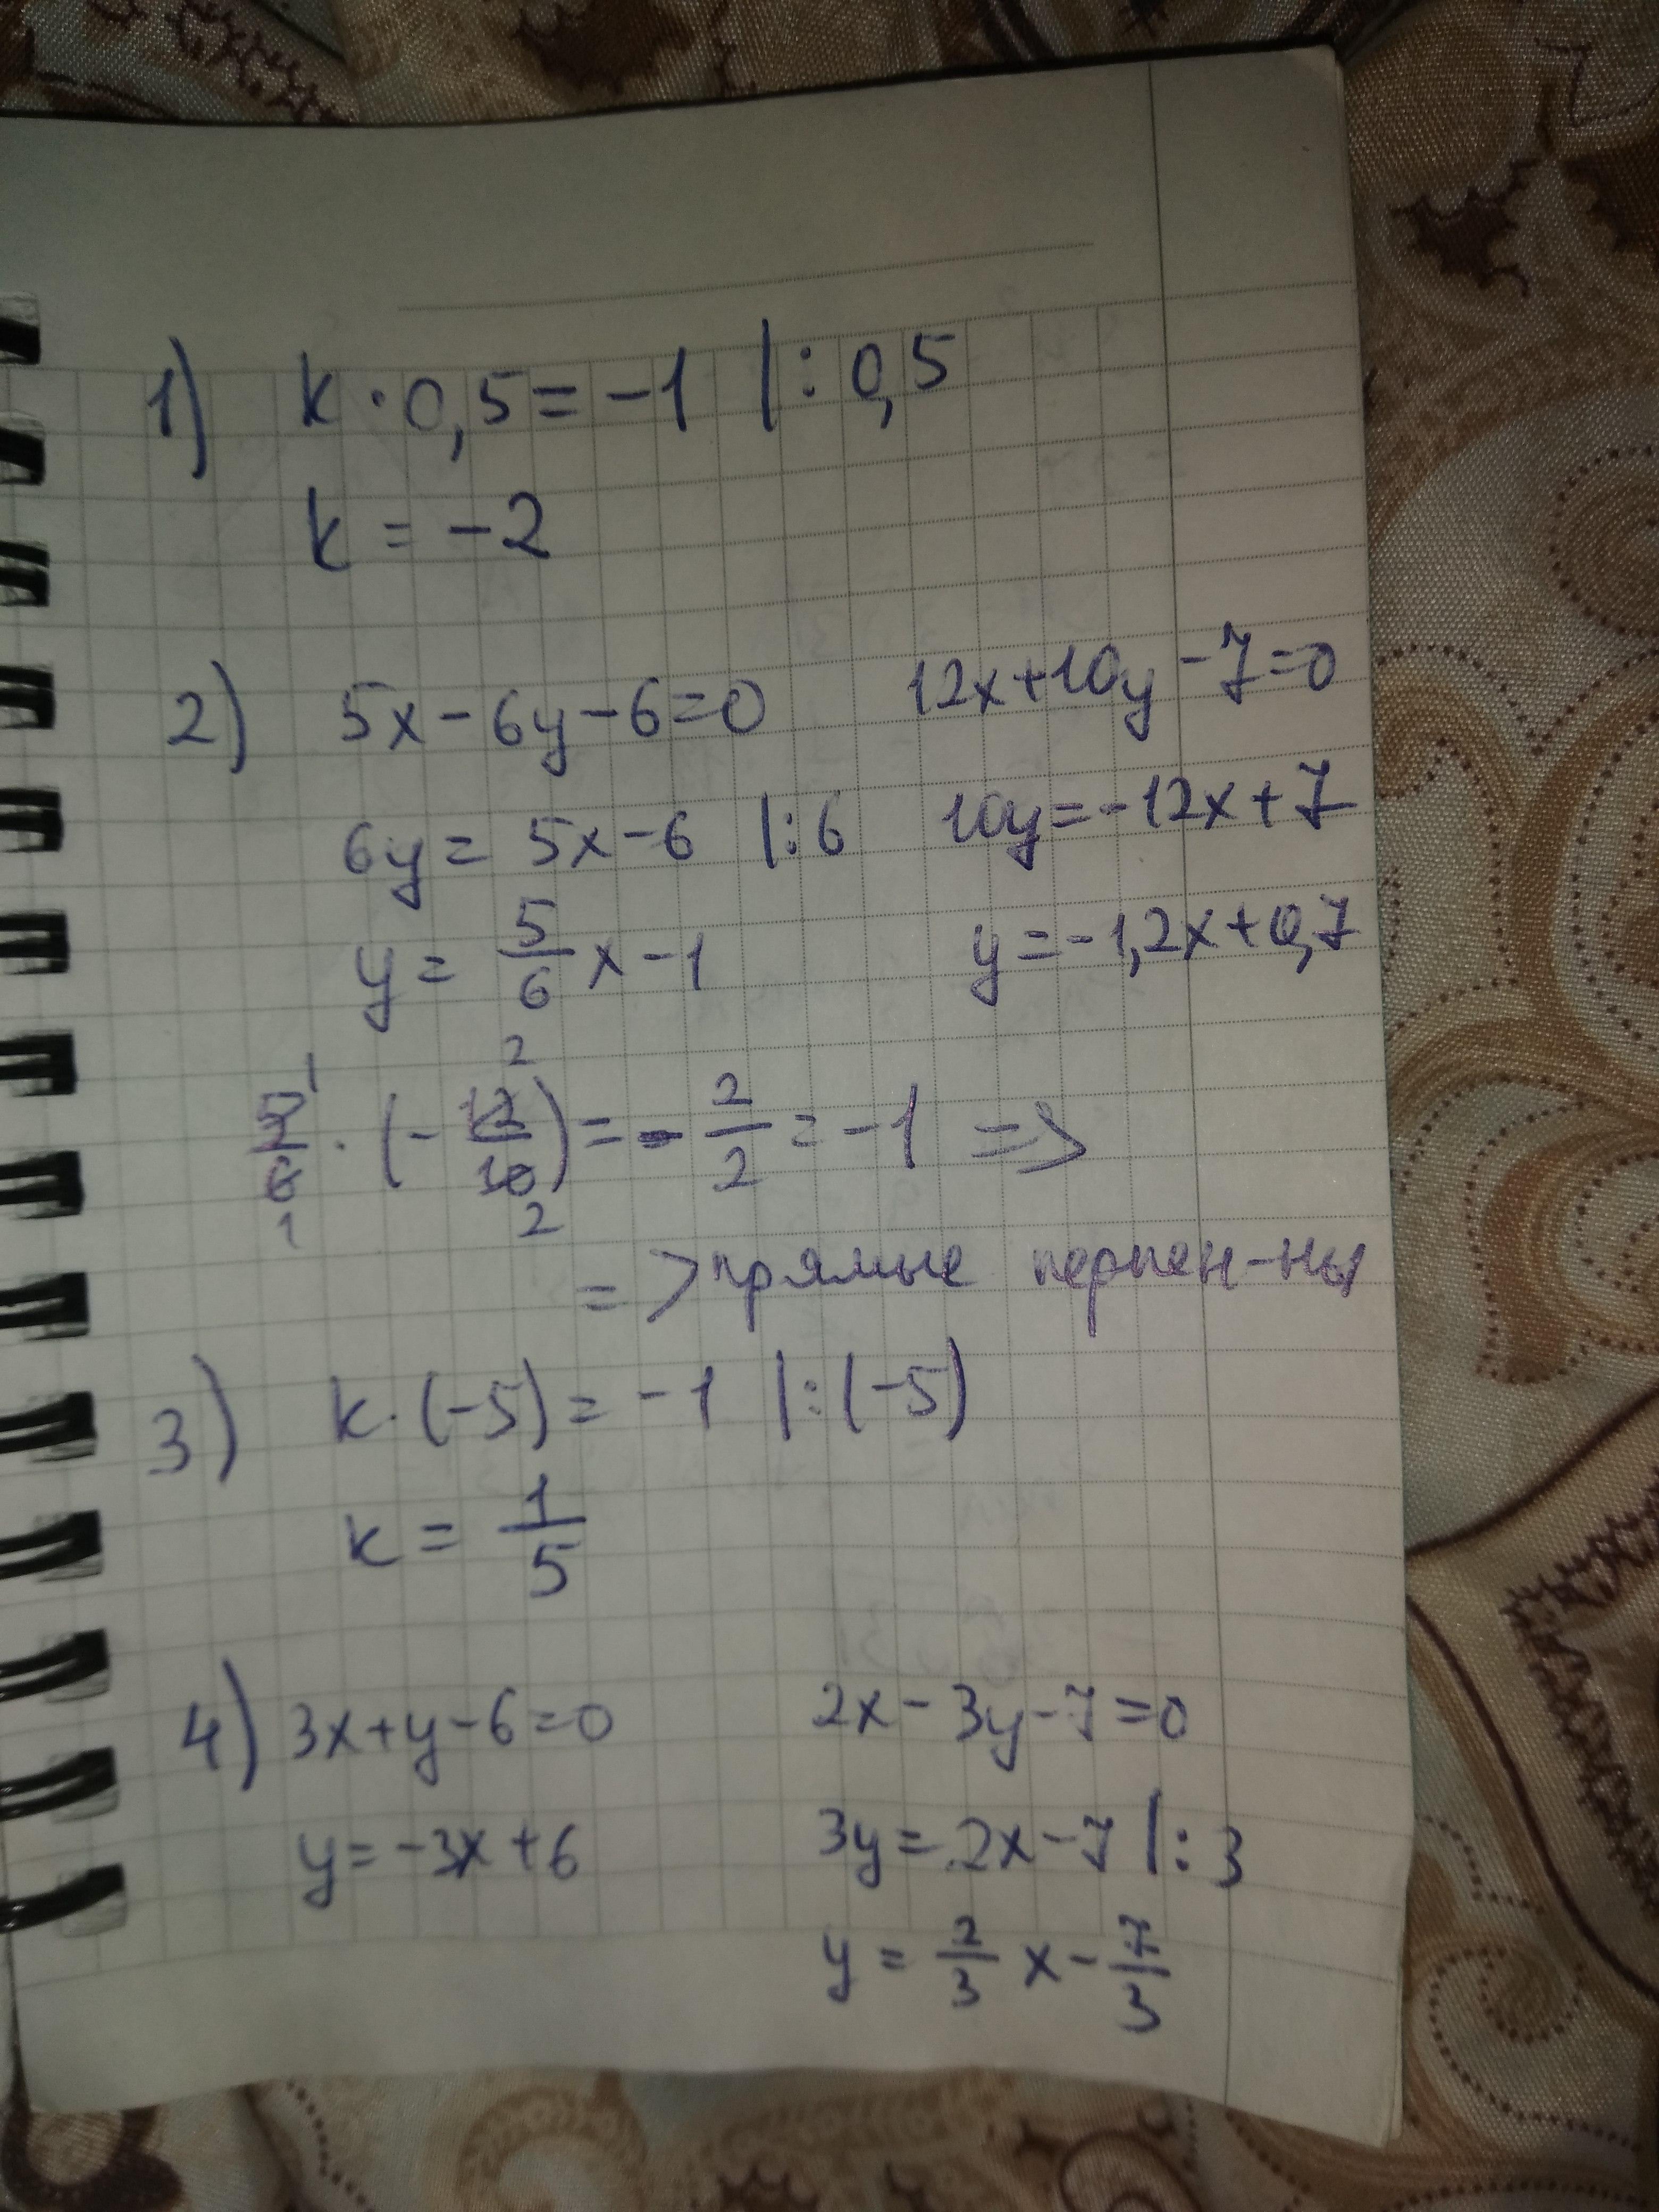 1) k · 0,5 = -1 |: 0,5
k = -2
2) 5x - 6y - 6 = 0 12x + 10y - 7 = 0
6y = 5x - 6 |: 6 10y = -12x + 7
y = 5/6 x - 1 y = -1,2x + 0,7
1 2
5/6 · (- 12/10) = - 2/2 = -1 =>
1 2
=> прямые перпен-ны
3) k · (-5) = -1 |: (-5)
k = 1/5
4) 3x + y - 6 = 0 2x - 3y - 7 = 0
y = -3x + 6 3y = 2x - 7 |: 3
y = 2/3 x - 7/3